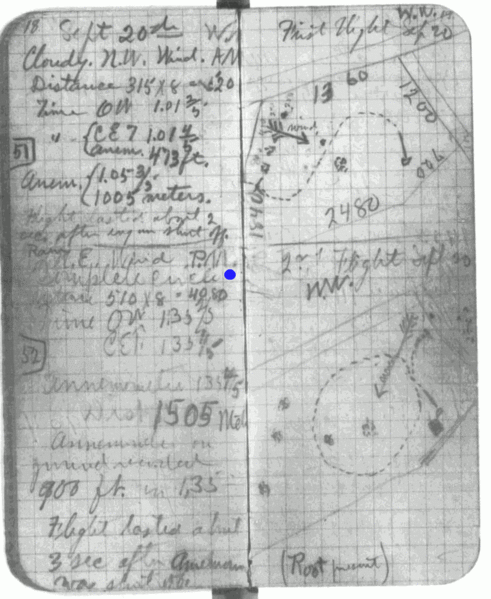 18 Sept 20th
Cloudy. N.W. Wind. AM
Distance 315 x 8 = 2520
Time OW 1.01 2/5
51
" { C.E.T 1.01 4/5
anem. 473 ft.
Anem. { 1.05 3/5
1005 meters.
Flight lasted about 2
sec after engine shut off.
N.E. Wind P.M.
Complete circle
Distance 510 x 8 = 4080
Time OW 1.35 2/5
C.E.T. 1.35 4/5
52
Annemometer 1.35 4/5
Dist 1505 Met
Annemometer on
ground recorded
900 ft. in 1.35
Flight lasted about
3 sec after Anemom
was shut off
First Flight W.W.
Sep 20
1360
1200
wind
700
1840
2480
2nd Flight Sept 20
W.W.
(Root present)